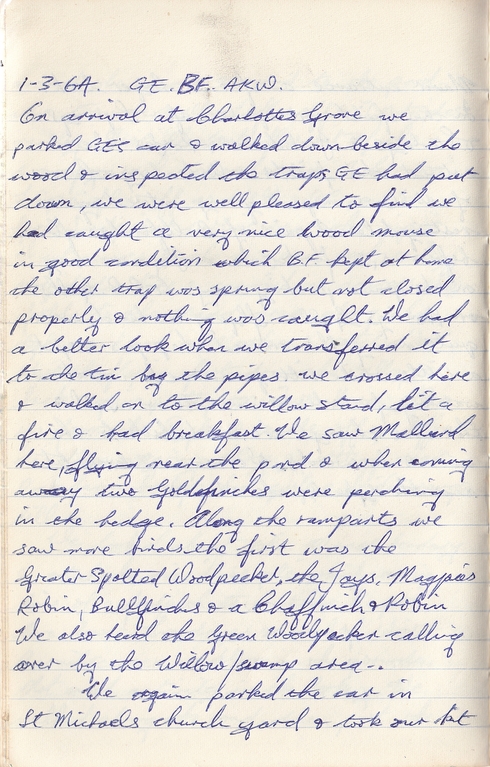 1-3-64. GE. BF. AKW.
On arrival at Charlottes Grove we
parked GE's car & walked down beside the
wood & inspected the traps GE had put
down, we were well pleased to find we
had caught a very nice wood mouse
in good condition which BF kept at home
the other trap was sprung but not closed
properly & nothing was caught. We had
a better look when we transferred it
to the tin by the pipes. we crossed here
& walked on to the willow stand, lit a
fire & had breakfast. We saw Mallard
here, flying near the pond & when coming
away two Goldfinches were perching
in the hedge. Along the ramparts we
saw more birds, the first was the
Greater Spotted Woodpecker, the Jays, Magpies
Robin, Bullfinches & a Chaffinch & Robin
We also heard the Green Woodpecker calling
over by the Willow/swamp area-.
We again parked the car in
St Michaels church yard & took our